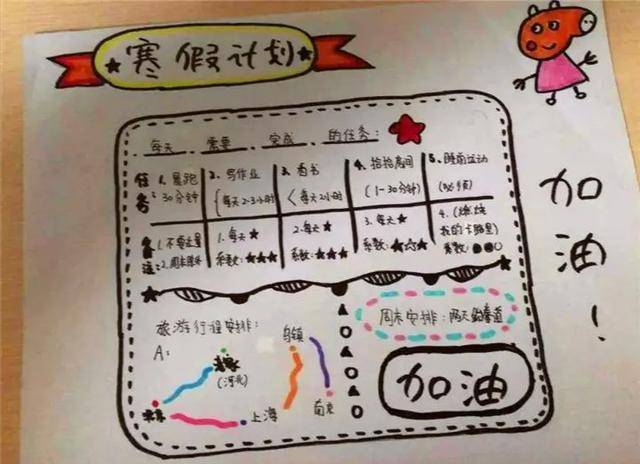 寒假计划
每天 需要 完成 的任务:
任务:
1. 晨跑
30分钟
2. 写作业
(每天2-3小时
3. 看书
<每天2小时
4. 拾拾房间
(1-30分钟)
5. 睡前运动
备注:
1.不要过量
2.周末除外
1. 每天★
系数:★★★
2. 每天★
系数:★★★
3. 每天★
系数:★☆★
4. (燃烧
我的卡路里)
系数:●●○
旅游行程安排:
A:
(河北)
上海
乌镇
南京
周末安排:
加油
加油!